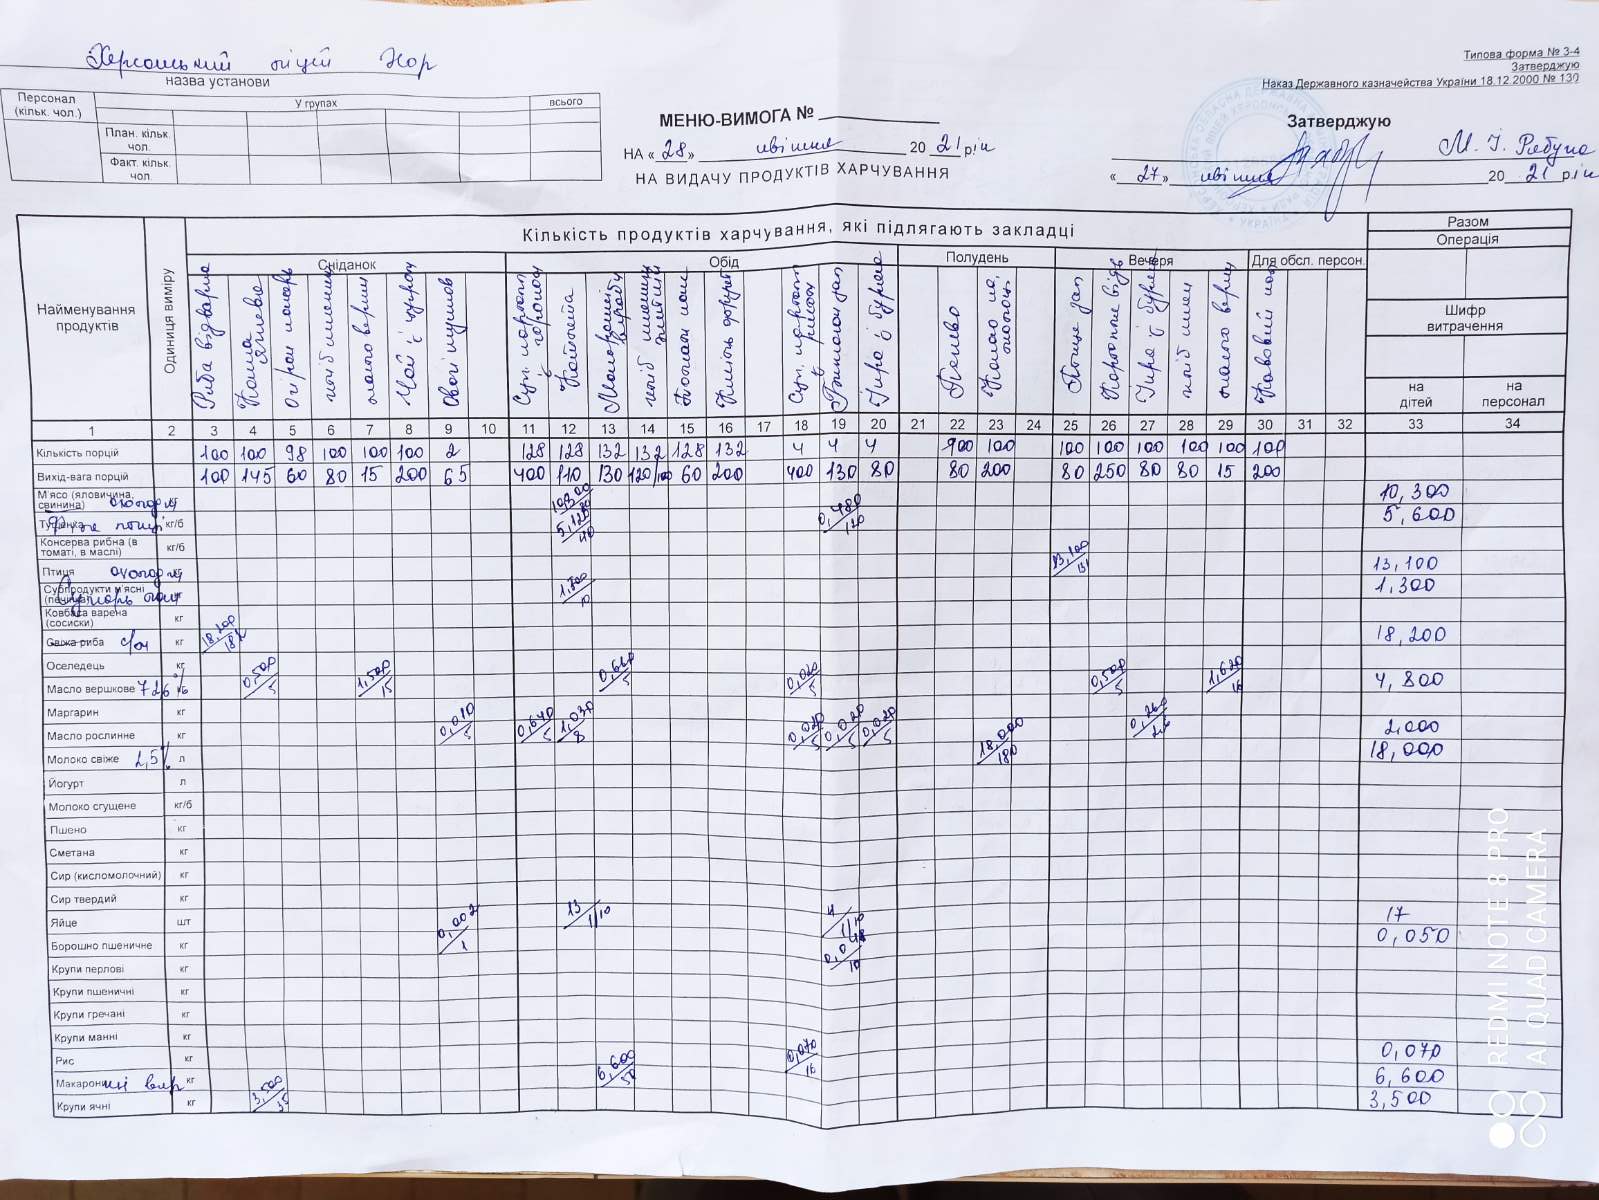 Херсонський ліцей ХОР
назва установи
Типова форма № 3-4
Затверджую
Наказ Державного казначейства України 18.12.2000 № 130
Персонал (кільк. чол.)
У групах
всього
План. кільк. чол.
Факт. кільк. чол.
МЕНЮ-ВИМОГА №
НА «28» квітня 2021 рік
НА ВИДАЧУ ПРОДУКТІВ ХАРЧУВАННЯ
Затверджую
М. І. Рябуха
«27» квітня 2021 рік
Найменування продуктів
Одиниця виміру
Кількість продуктів харчування, які підлягають закладці
Разом
Операція
Шифр витрачення
на дітей
на персонал
Сніданок
Обід
Полудень
Вечеря
Для обсл. персон.
Риба відварна
Каша ячнева
Огірки
хліб пшеничн
масло вершк
Чай з цукром
Овочі
Суп картоп з горохом
Котлета
Макаронні вироби
хліб
Суп картоп рисом
Пюре з буряка
Печиво
Какао
Птиця зап
Картопля відв
Ікра з буряка
хліб пшен
масло верш
1 2 3 4 5 6 7 8 9 10 11 12 13 14 15 16 17 18 19 20 21 22 23 24 25 26 27 28 29 30 31 32 33 34
Кількість порцій 100 100 98 100 100 100 2 128 128 132 132 128 132 4 4 4 100 100 100 100 100 100 100 100
Вихід-вага порцій 100 145 60 80 15 200 65 400 110 130 120/100 60 200 400 130 80 80 200 80 250 80 80 15 200
М'ясо (яловичина, свинина) охолод кг 10,300 10,300
Тушонка кг/б 5,120/40 0,480/120 5,600
Консерва рибна (в томаті, в маслі) кг/б
Птиця охолод кг 13,100/131 13,100
Субпродукти м'ясні (печінка) кг 1,300/10 1,300
Ковбаса варена (сосиски) кг
Свіжа риба с/м кг 18,200/182 18,200
Оселедець кг
Масло вершкове 72,6 % кг 0,500/5 1,500/15 0,660/5 0,020/5 0,500/5 1,620/16 4,800
Маргарин кг
Масло рослинне кг 0,010/5 0,640/5 1,030/8 0,020/5 0,020/5 0,020/5 0,260/2,6 2,000
Молоко свіже 2,5% л 18,000/180 18,000
Йогурт л
Молоко сгущене кг/б
Пшено кг
Сметана кг
Сир (кисломолочний) кг
Сир твердий кг
Яйце шт 13 1/10 4 1/10 17
Борошно пшеничне кг 0,002/1 0,048/10 0,050
Крупи перлові кг
Крупи пшеничні кг
Крупи гречані кг
Крупи манні кг
Рис кг 0,070/16 0,070
Макаронні вир кг 6,600/50 6,600
Крупи ячні кг 3,500/35 3,500
REDMI NOTE 8 PRO
AI QUAD CAMERA